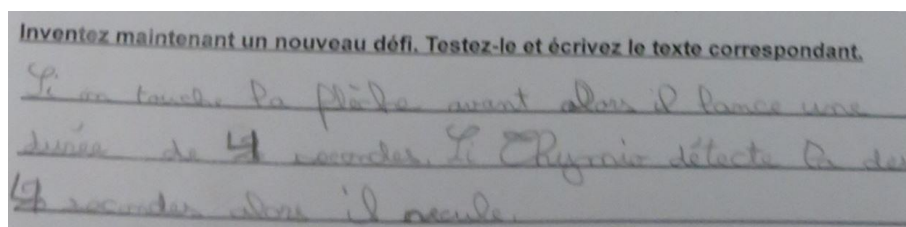 Inventez maintenant un nouveau défi. Testez-le et écrivez le texte correspondant.
Si on touche la flèche avant alors il lance une
durée de 4 secondes. Si Thymio détecte la de
4 secondes alors il recule.